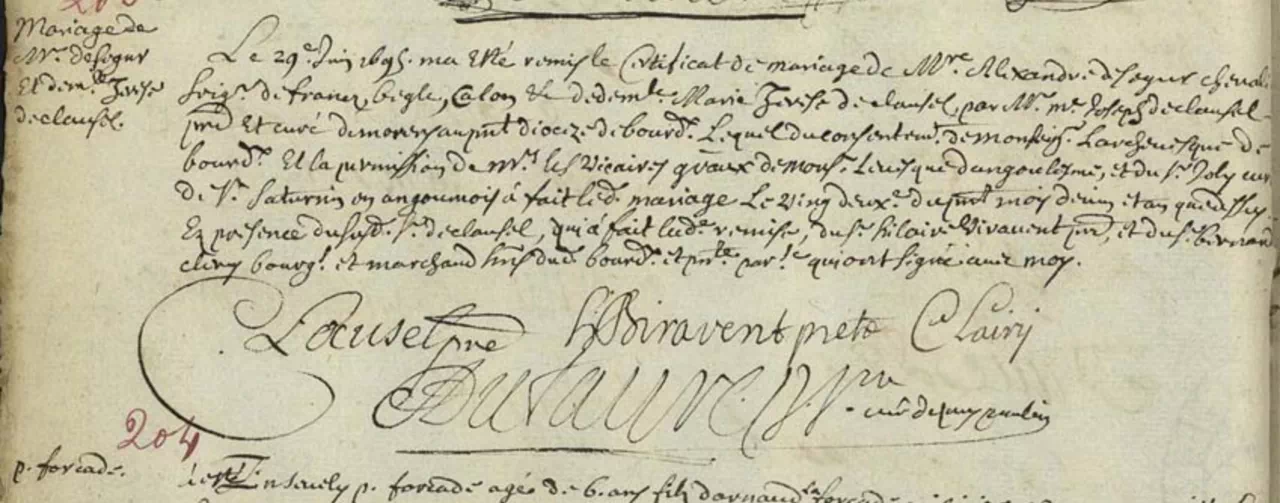 Mariage de
Mr. desegur
Et dem.lle Terese
declausel.
Le 29e. Juin 1695. ma esté remis le Certificat de mariage de Mre. Alexandre desegur chevali
seigr. de francz, begle, Calon & de demlle. Marie Terese declausel, par Mr. me Joseph declausel
ptre Et curé de au pnt dioceze de bourdx. Lequel du consentemt. de monseigr. Larchevesque de
bourdx. Et la permission de mrs les vicaires gñaux de monsr. Levesque dangoulesme, et du sr. Joly curé
de St. Saturnin en angoumois à fait led. mariage Le vingt deuxe. du pnt mois de juin et an que dessus.
En présence du susd. sr. declausel, qui à fait lade. remise, du sr. hilaire Biravent ptre, et du sr. bernard
clery bourgs. et marchand de bourdx. et pnte parse. qui ont signé avec moy.
Clausel pre HBiravent pretre Clairij
Dufaure ptre
curé de puypaulin
204
p. forcade.
à esté Enseuely p. forcade agé de 6. ans filz darnaud forcade